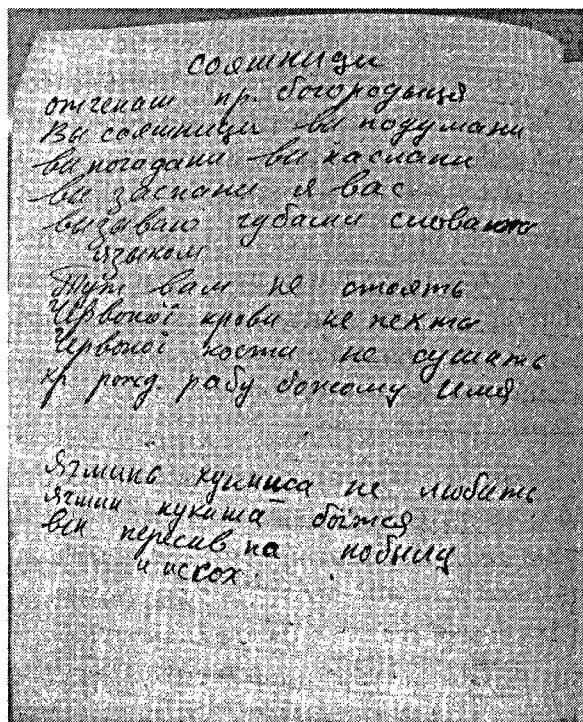 сояшници
отченаш пр. богородыця
Вы сояшници вы подумани
вы погадани вы наслани
вы заспани я вас
вызываю губами словами
языком
Тут вам не стоять
Червоної крови не пекти
Червоної кости не сушить
хр рожд. рабу божому имя
Ягминь кукиша не любить
ягмин кукиша боїтся
вин пересив на
и иссох.